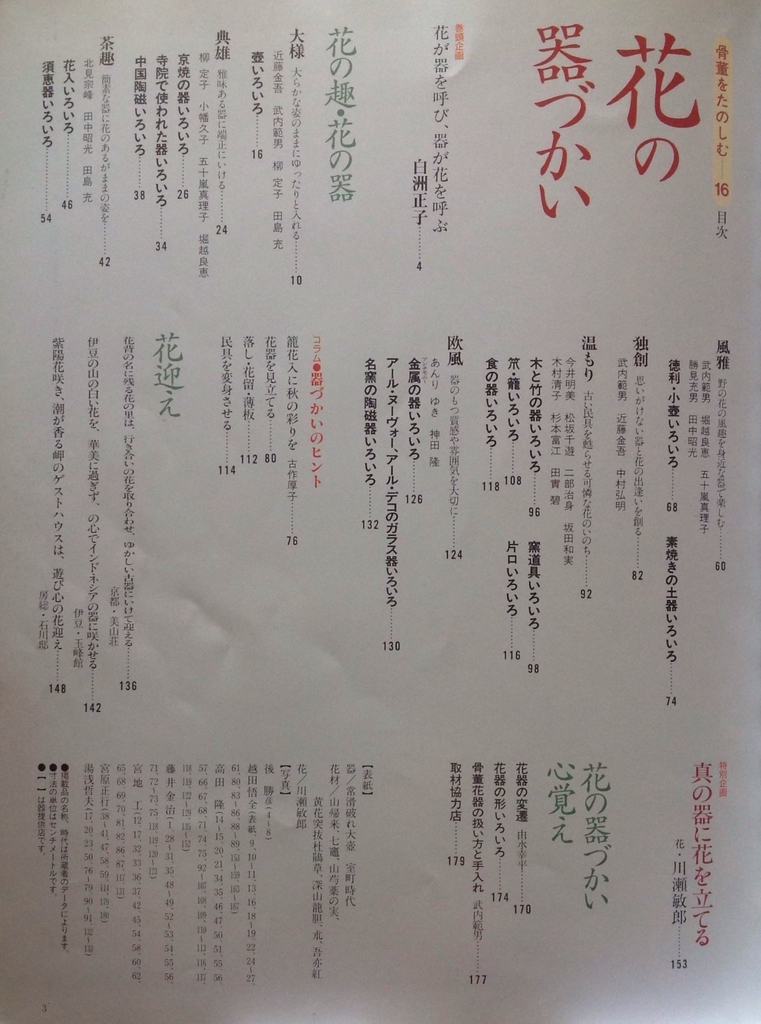 骨董をたのしむ——16 目次
花の
器づかい
巻頭企画
花が器を呼び、器が花を呼ぶ
白洲正子……4
花の趣・花の器
大様 大らかな姿のままにゆったりと入れる……10
近藤金吾 武内範男 柳 定子 田島 充
壺いろいろ……16
典雄 雅味ある器に端正にいける……24
柳 定子 小幡久子 五十嵐真理子 堀越良恵
京焼の器いろいろ……26
寺院で使われた器いろいろ……34
中国陶磁いろいろ……38
茶趣 簡素な器に花のあるがままの姿を……42
北見宗峰 田中昭光 田島 充
花入いろいろ……46
須恵器いろいろ……54
風雅 野の花の風趣を身近な器で楽しむ……60
武内範男 堀越良恵 五十嵐真理子
勝見充男 田中昭光
徳利・小壺いろいろ……68
素焼きの土器いろいろ……74
独創 思いがけない器と花の出逢いを創る……82
武内範男 近藤金吾 中村弘明
温もり 古い民具を甦らせる可憐な花のいのち……92
今井明美 松坂千遊 二部治身 坂田和実
木村清子 杉本富江 田實 碧
木と竹の器いろいろ……96
窯道具いろいろ……98
笊・籠いろいろ……108
片口いろいろ……116
食の器いろいろ……118
欧風 器のもつ質感や雰囲気を大切に……124
あんり ゆき 神田 隆
金属の器いろいろ……126
アール・ヌーヴォー、アール・デコのガラス器いろいろ……130
名窯の陶磁器いろいろ……132
コラム●器づかいのヒント
籠花入に秋の彩りを 古作厚子……76
花器を見立てる……80
落し・花留・薄板……112
民具を変身させる……114
花迎え
花背の名に残る花の里は、行き合いの花を取り合わせ、ゆかしい古器にいけて迎える……136
京都・美山荘
伊豆の山の白い花を、華美に過ぎず、の心でインドネシアの器に咲かせる……142
伊豆・玉峰館
紫陽花咲き、潮が香る岬のゲストハウスは、遊び心の花迎え……148
房総・石川邸
特別企画
真の器に花を立てる
花・川瀬敏郎……153
花の器づかい
心覚え
花器の変遷 由水幸平……170
花器の形いろいろ……174
骨董花器の扱い方と手入れ 武内範男……177
取材協力店……179
【表紙】
器/常滑破れ大壺 室町時代
花材/山帰来、七竈、山芍薬の実、
黄花突抜杜鵑草、深山龍胆、朮、吾亦紅
花/川瀬敏郎
【写真】
後 勝彦(4〜8)
越田悟全(表紙、9、10、11、13、16、18〜19、22、24〜27、
高田 隆(14〜15、20、21、34、35、46、47、50、51、55、56、
藤井金治(1、28、31、35、48〜49、52〜53、54、55、56、
宮地 工(12、17、32、33、36、37、42、45、54、58、60、62、
宮原正行
湯浅哲夫(17、20、23、50、76〜79、90〜91、132〜133)
●掲載品の名称、時代は所蔵者のデータによります。
●寸法の単位はセンチメートルです。
●【 】は器提供店です。
3